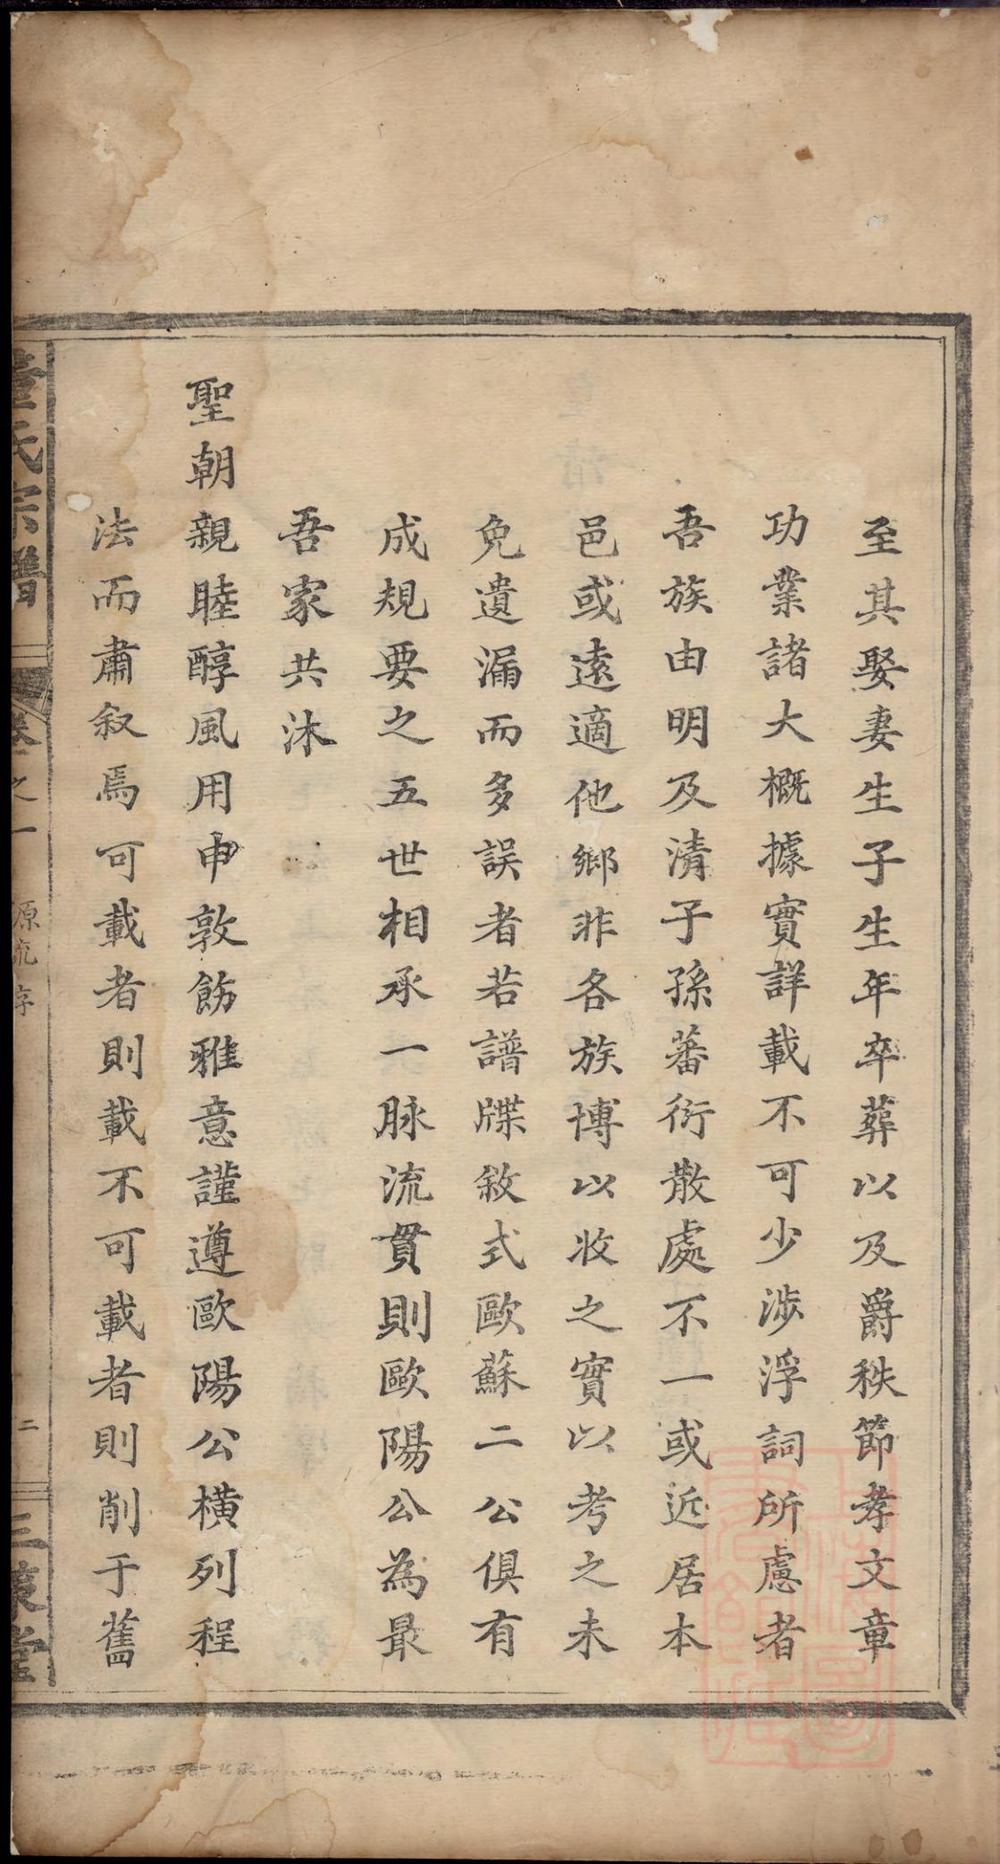 至其娶妻生子生年卒葬以及爵秩節孝文章
功業諸大概據實詳載不可少涉浮詞所慮者
吾族由明及清子孫蕃衍散處不一或近居本
邑或遠適他鄉非各族博以收之實以考之未
免遺漏而多誤者若譜牒敘式歐蘇二公俱有
成規要之五世相承一脉流貫則歐陽公為最
吾家共沐
聖朝親睦醇風用申敦飭雅意謹遵歐陽公橫列程
法而肅叙焉可載者則載不可載者則削于舊
董氏宗譜
卷之一
源流序
二
三策堂